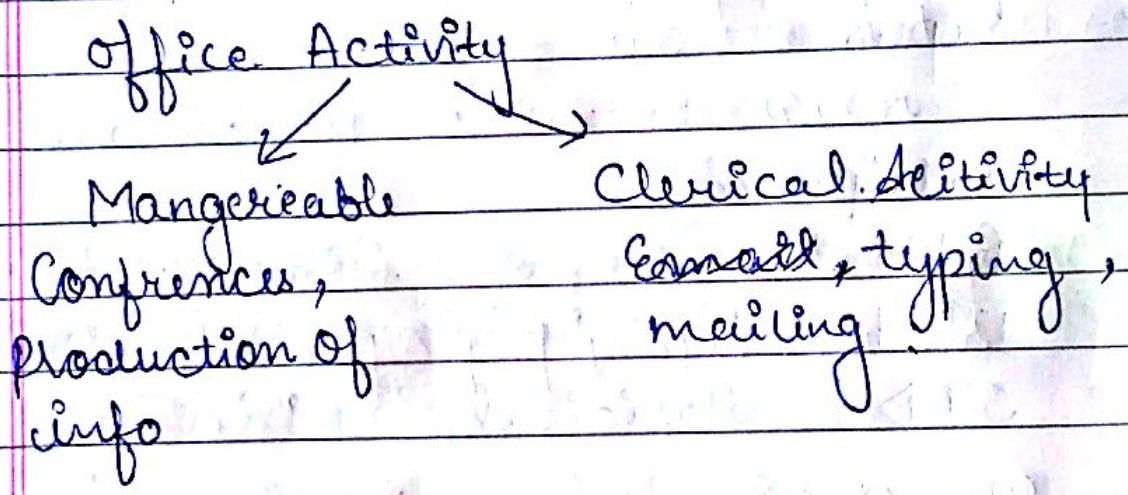 Office Activity
Mangereable
Confrences,
Production of
info
Clerical Acitivity
typing,
mailing.